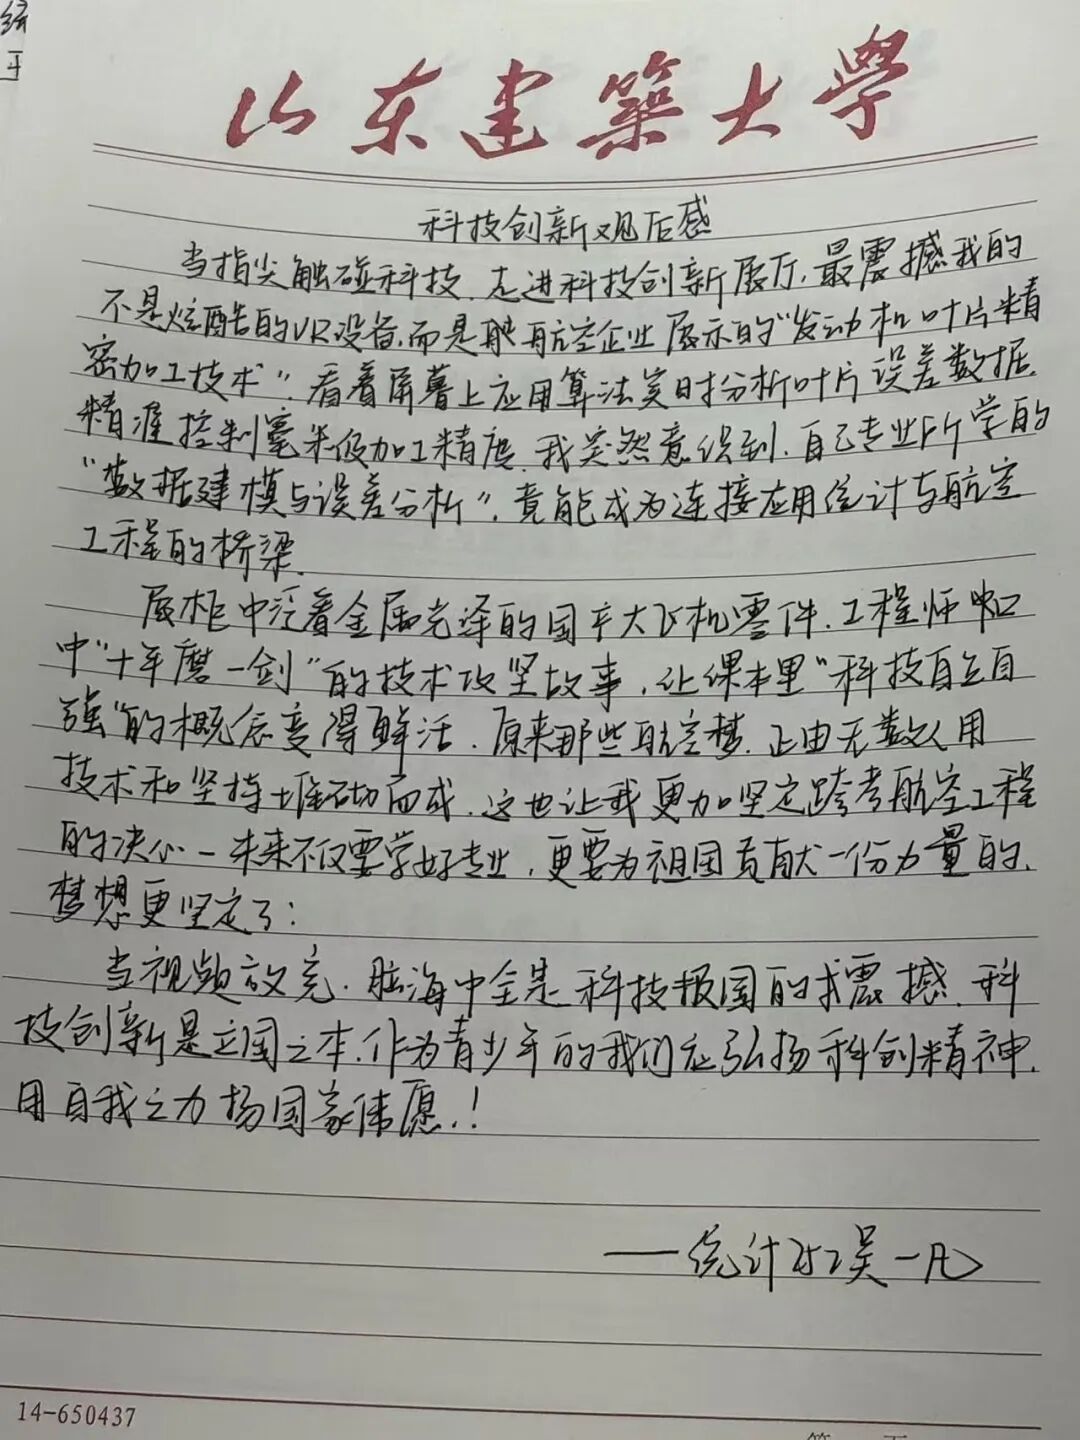 山东建筑大学
科技创新观后感
当指尖触碰科技.走进科技创新展厅,最震撼我的
不是炫酷的VR设备,而是航空企业展示的"发动机叶片精
密加工技术".看着屏幕上应用算法实时分析叶片误差数据.
精准控制毫米级加工精度.我突然意识到.自己专业所学的
"数据建模与误差分析",竟能成为连接应用统计与航空
工程的桥梁.
展柜中泛着金属光泽的国产大飞机零件.工程师口
中"十年磨一剑"的技术攻坚故事,让课本里"科技自立自
强"的概念变得鲜活.原来那些航空梦.正由无数人用
技术和坚持堆砌而成.这也让我更加坚定跨考航空工程
的决心—未来不仅要学好专业,更要为祖国贡献一份力量的.
梦想更坚定了:
当视频放完.脑海中全是科技报国的震撼.科
技创新是立国之本.作为青少年的我们应弘扬科创精神.
用自我之力扬国家伟愿.!
——统计252吴一凡
14-650437